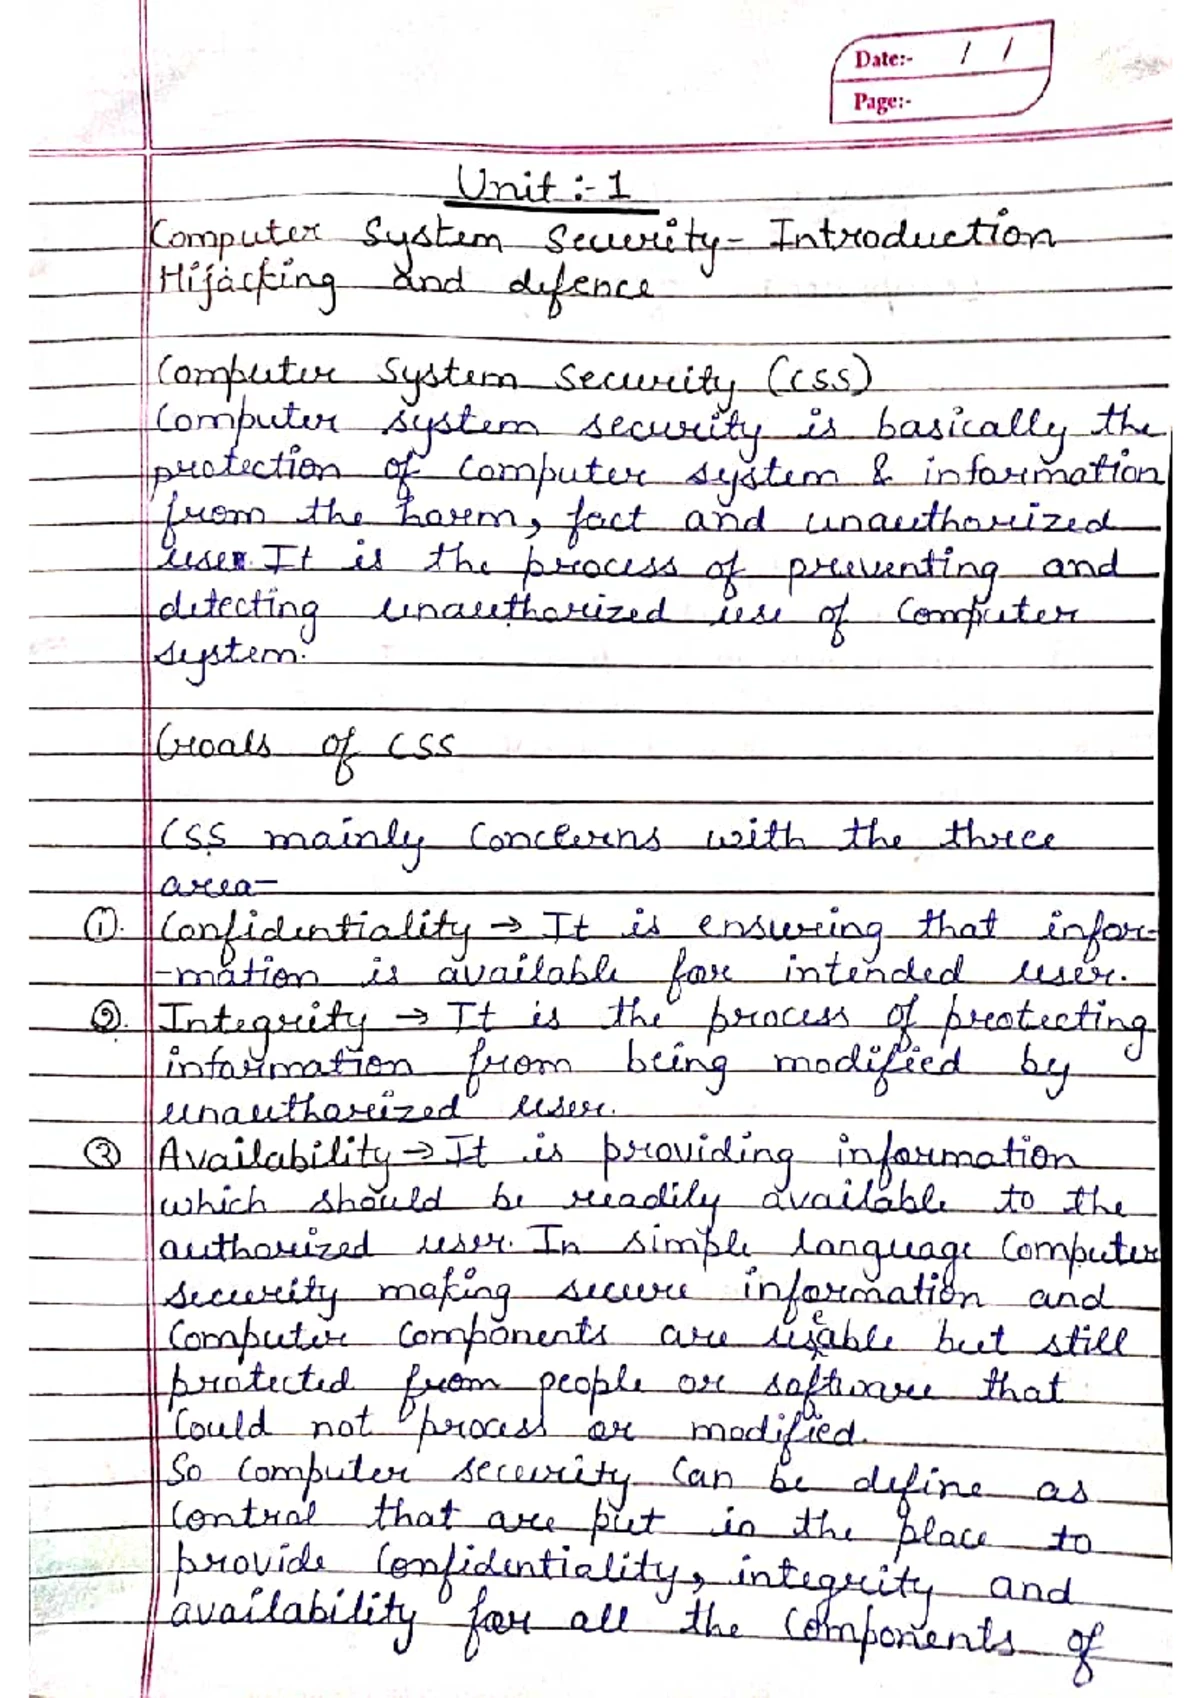 Date:- / /
Page:-
Unit :- 1
Computer System Security- Introduction
Hijacking and defence
Computer System Security (CSS)
Computer system security is basically the
protection of computer system & information
from the harm, fact and unauthorized
user. It is the process of preventing and
detecting unauthorized use of computer
system.
Goals of CSS
CSS mainly Concerns with the three
area-
①. Confidentiality → It is ensuring that infor-
-mation is available for intended user.
②. Integrity → It is the process of protecting
information from being modified by
unauthorized user.
③ Availability → It is providing information
which should be readily available to the
authorized user. In simple language Computer
security making secure information and
Computer Components are useable but still
protected from people or software that
Could not process or modified.
So Computer security Can be define as
Control that are put in the place to
provide Confidentiality, integrity and
availability for all the Components of